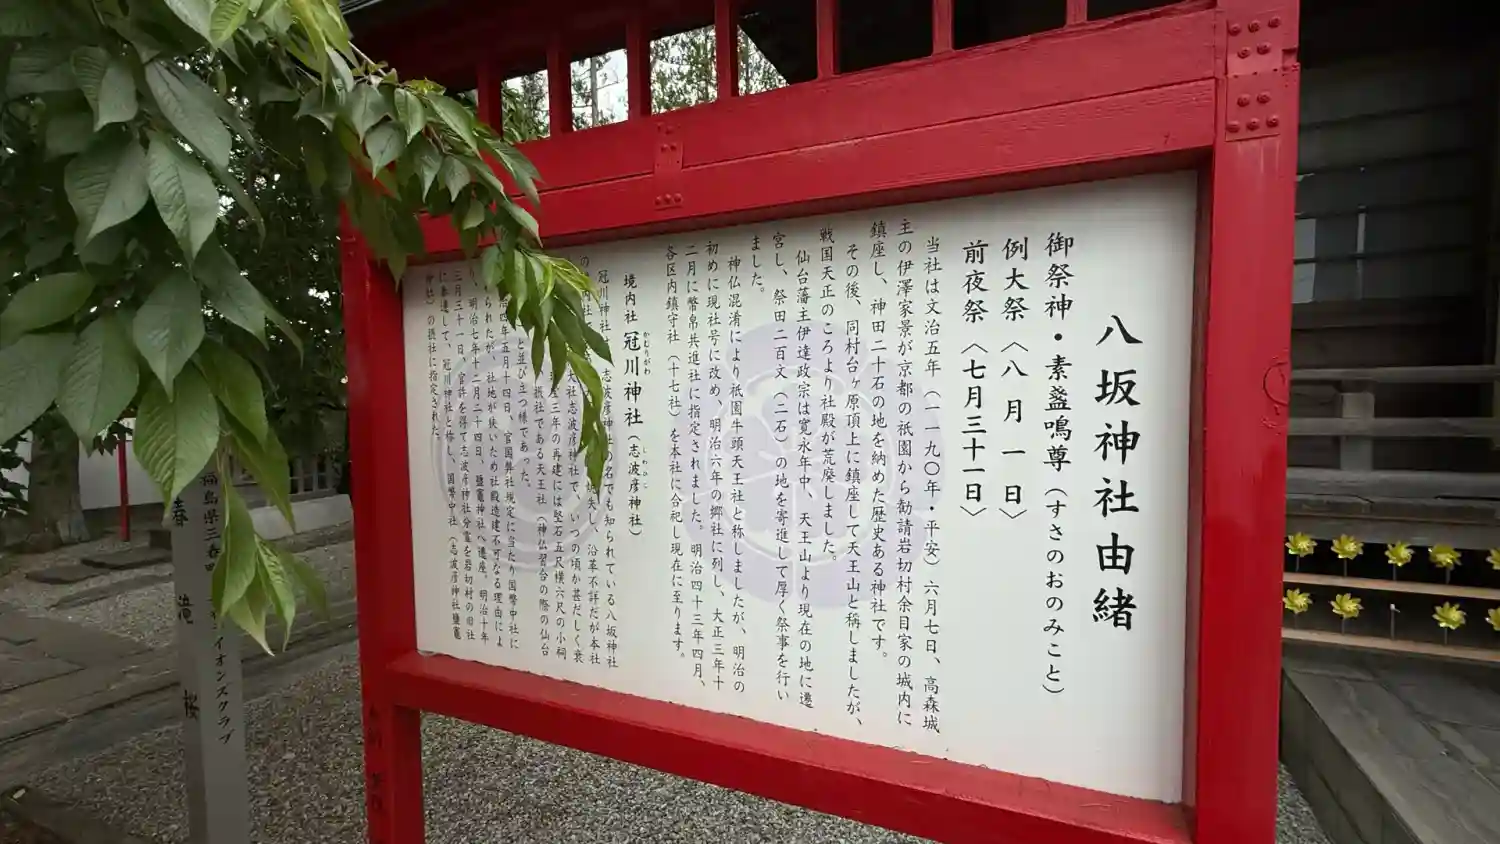 八坂神社由緒
御祭神・素盞鳴尊(すさのおのみこと)
例大祭〈八月一日〉
前夜祭〈七月三十一日〉
当社は文治五年(一一九〇年・平安)六月七日、高森城
主の伊澤家景が京都の祇園から勧請岩切村余目家の城内に
鎮座し、神田二十石の地を納めた歴史ある神社です。
その後、同村台ヶ原頂上に鎮座して天王山と称しましたが、
戦国天正のころより社殿が荒廃しました。
仙台藩主伊達政宗は寛永年中、天王山より現在の地に遷
宮し、祭田二百文(二石)の地を寄進して厚く祭事を行い
ました。
神仏混淆により祇園牛頭天王社と称しましたが、明治の
初めに現社号に改め、明治六年の郷社に列し、大正三年十
二月に幣帛共進社に指定されました。明治四十三年四月、
各区内鎮守社(十七社)を本社に合祀し現在に至ります。
境内社 冠川神社(志波彦神社)
かむりがわ
しわひこ
冠川神社 志波彦神社の名でも知られている八坂神社
の 焼失し、沿革不詳だが本社
大社志波彦神社で、いつの頃か甚だしく衰
三年の再建には竪石五尺横六尺の小祠
摂社である天王社(神仏習合の際の仙台
と並び立つ様であった。
治四年五月十四日、官国弊社規定に当たり国幣中社に
られたが、社地が狭いため社殿造建不可なる理由によ
り、明治七年十二月二十四日、鹽竈神社へ遷座。明治十年
三月三十一日、官許を得て志波彦神社分霊を岩切村の旧社
に奉還して、冠川神社と称し、国幣中社(志波彦神社鹽竈
神社)の摂社に指定された。
福島県三春町 ライオンズクラブ
春 滝 桜